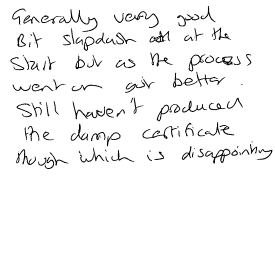 Generally very good
Bit slapdash at the
Start but as the process
went on got better.
Still haven't produced
the damp certificate
though which is disappointing